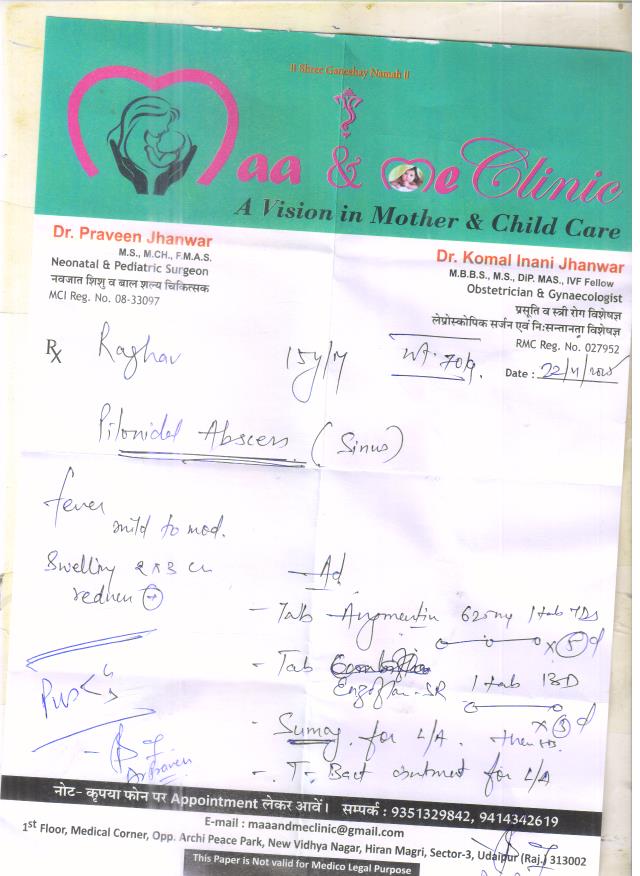 ॥ Shree Ganeshay Namah ॥
Maa & Me Clinic
A Vision in Mother & Child Care
Dr. Praveen Jhanwar
M.S., M.CH., F.M.A.S.
Neonatal & Pediatric Surgeon
नवजात शिशु व बाल शल्य चिकित्सक
MCI Reg. No. 08-33097
Dr. Komal Inani Jhanwar
M.B.B.S., M.S., DIP. MAS., IVF Fellow
Obstetrician & Gynaecologist
प्रसूति व स्त्री रोग विशेषज्ञ
लेप्रोस्कोपिक सर्जन एवं निःसन्तानता विशेषज्ञ
RMC Reg. No. 027952
Rx Raghav 15y/M Wt. 70
Date : 22/11/
Pilonidal Abscess (Sinus)
fever
mild to mod.
Swelling 2x3 cm
Ad
- Tab Augmentin 625mg 1 tab TDS
x 5 d
- Tab
Enzoflam-SR 1 tab BD
x 3 d
- Sumag for L/A. then
- T-Bact ointment for L/A
Pus
Dr Praveen
नोट- कृपया फोन पर Appointment लेकर आवें। सम्पर्क : 9351329842, 9414342619
E-mail : maaandmeclinic@gmail.com
1st Floor, Medical Corner, Opp. Archi Peace Park, New Vidhya Nagar, Hiran Magri, Sector-3, Udaipur (Raj.) 313002
This Paper is Not Valid for Medico Legal Purpose